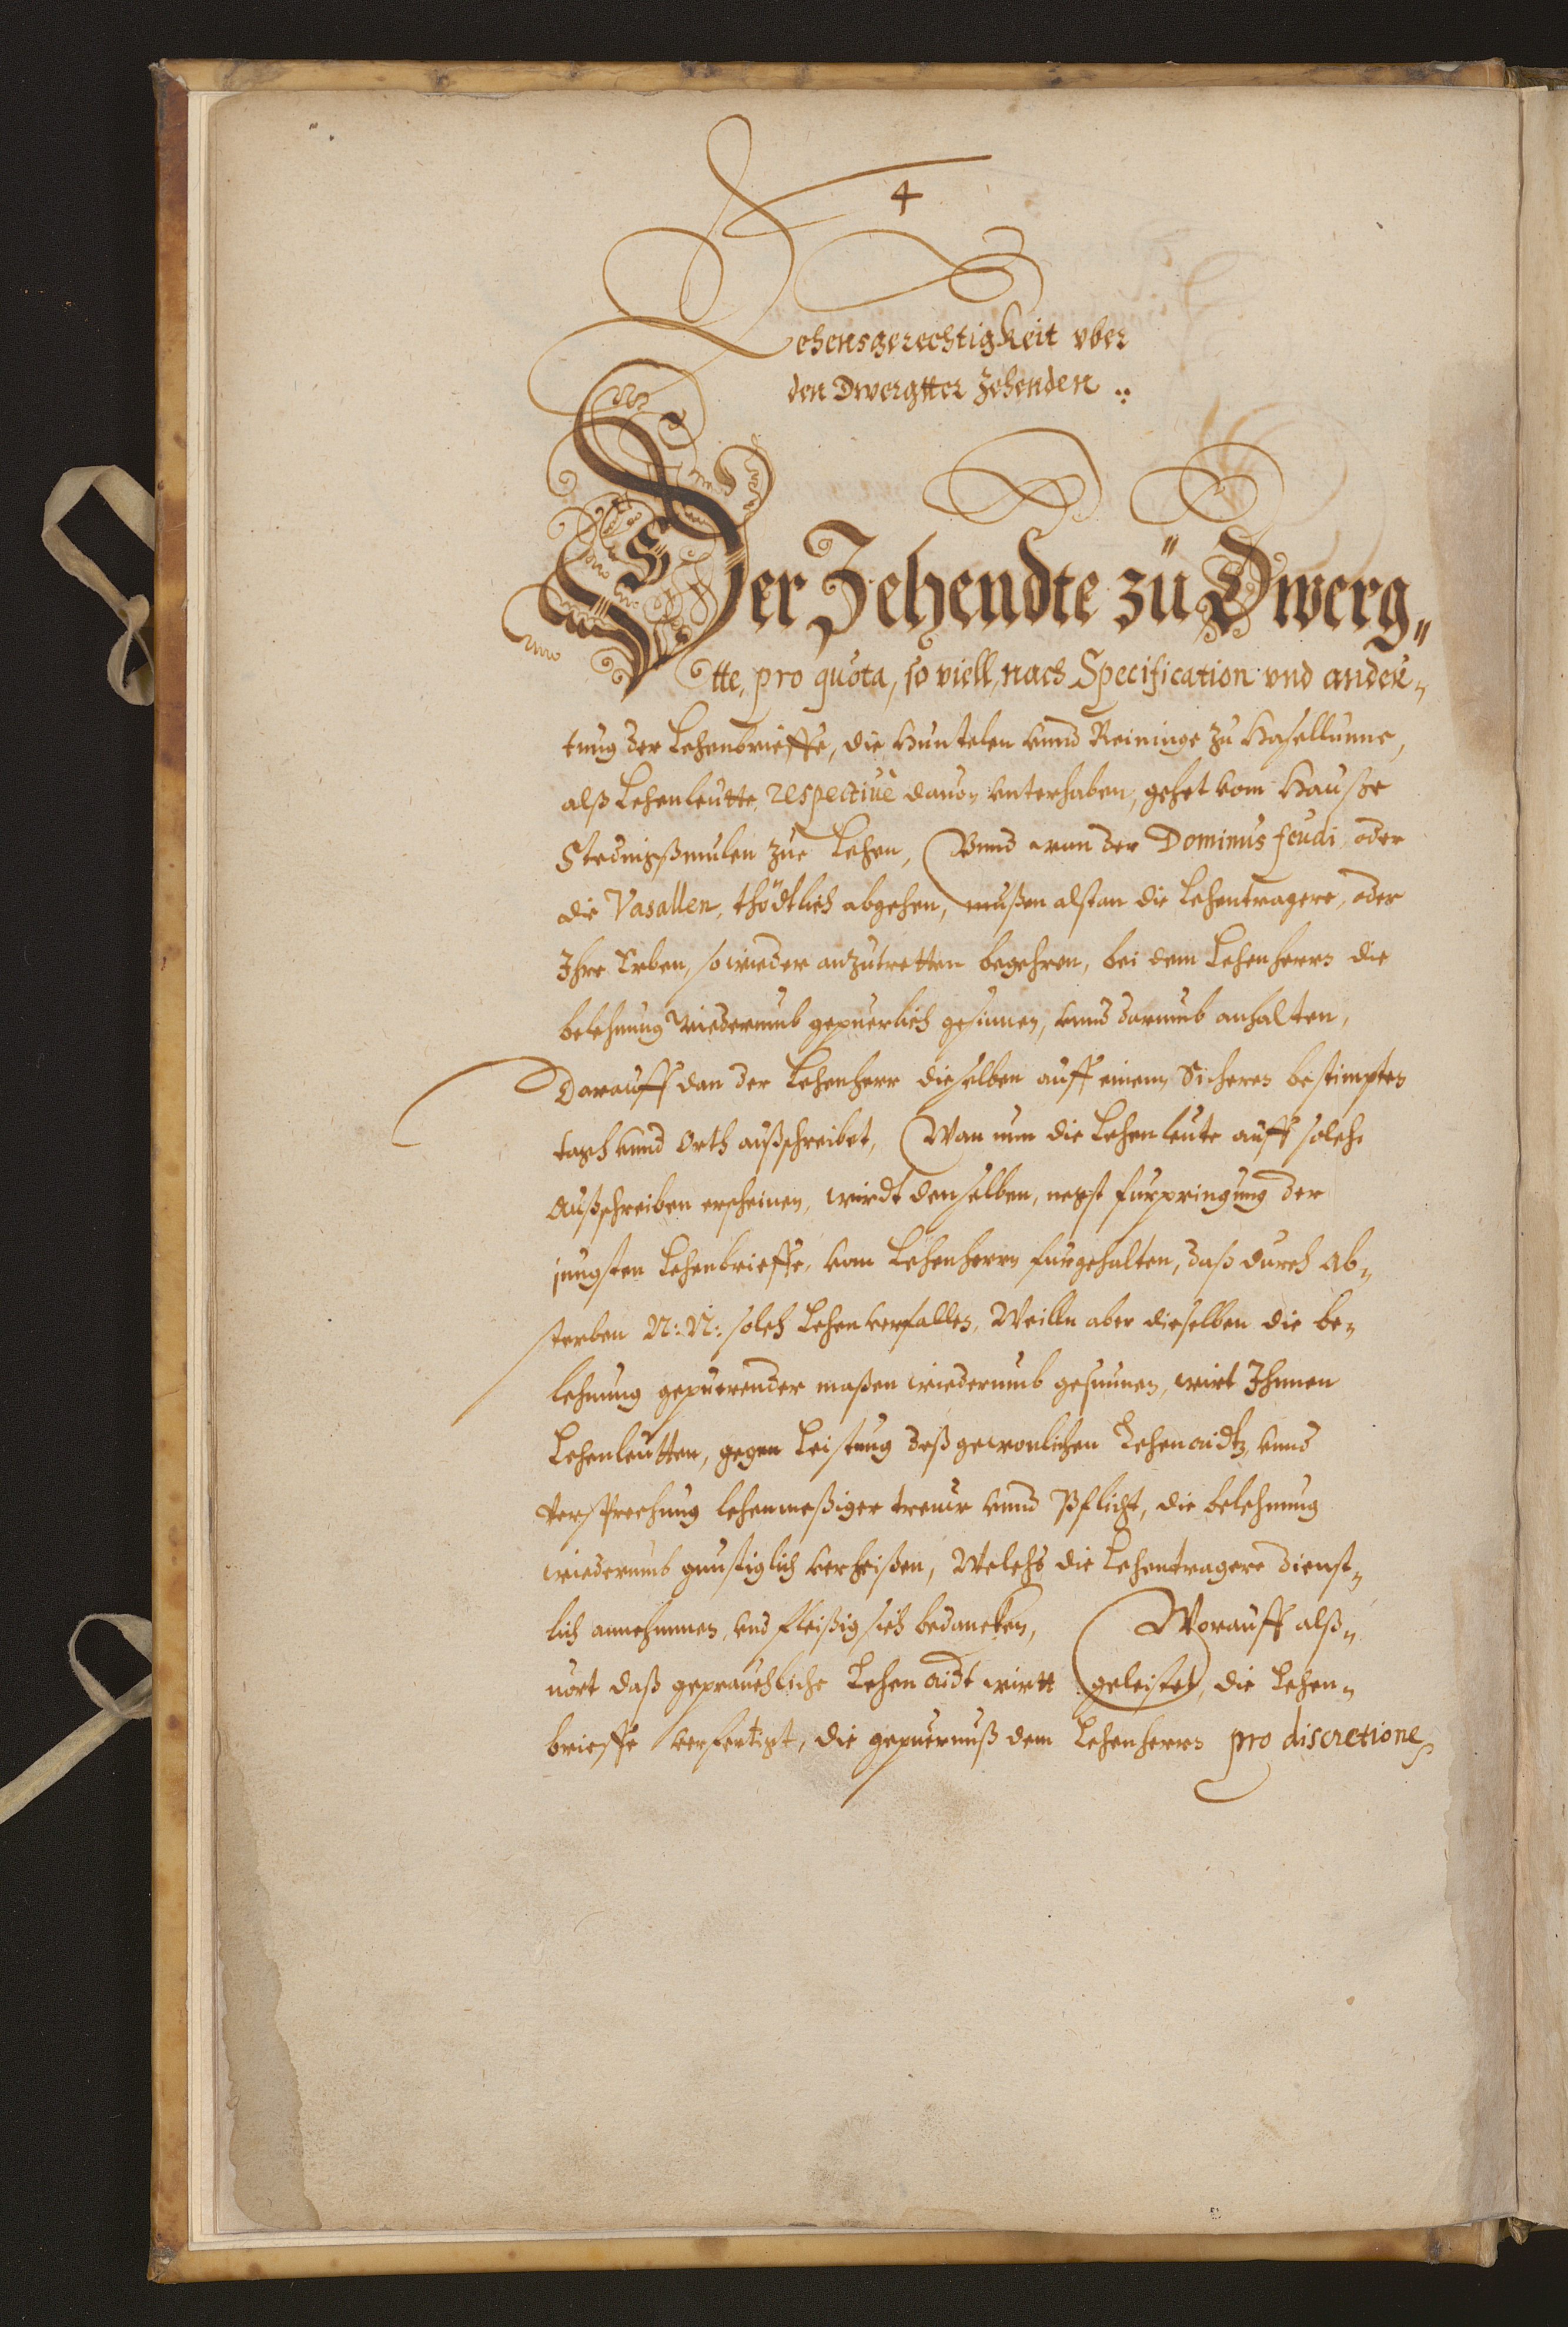 4
Lehensgerechtigkeit vber
den Dwergtter Zehenden
Der Zehendte zü Dwerg„
tte, pro quota, so viell, nach Specification vnd andeu„
tung der Lehenbrieffe, die Huntelen vnnd Reininge zu Hasellunne,
alß Lehenleutte, respectiuè dauon vnterhaben, gehet vom Hauße
zue Lehen, Vnnd wan der Dominus feudi, oder
die Vasallen, thödtlich abgehen, mußen alßtan die Lehentragere, oder
Ihre Erben, so wieder anzutretten begehren, bei dem Lehenherrn die
belehnung wiederumb gepuerlich gesinnen, vnnd darumb anhalten,
Darauff dan der Lehenherr dieselben auff einem Sichern bestimpten
tagh vnnd Orth außschreibet, Wan nun die Lehenleute auff solch
Außschreiben erscheinen, wirdt denselben, negst furpringung der
jungsten Lehenbrieffe, vom Lehenherrn furgehalten, daß durch Ab„
sterben N: N: solch Lehen verfallen, Weilln aber dieselben die be„
lehnung gepuerender maßen wiederumb gesunnen, wirt Ihnnen
Lehenleutten, gegen Leistung deß gewonlichen Lehenaidtz, vnnd
versprechung lehenmeßiger trewe vnnd Pflicht, die belehnung
wiederumb gunstiglich verheißen, Welchs die Lehentragere dienst„
lich annehmmen, vnd fleißig sich bedancken, Worauff alß„
uort daß gepräuchliche Lehen aidt wirtt geleistet, die Lehen„
brieffe verfertigt, die gepuernuß dem Lehenherrn pro discretione